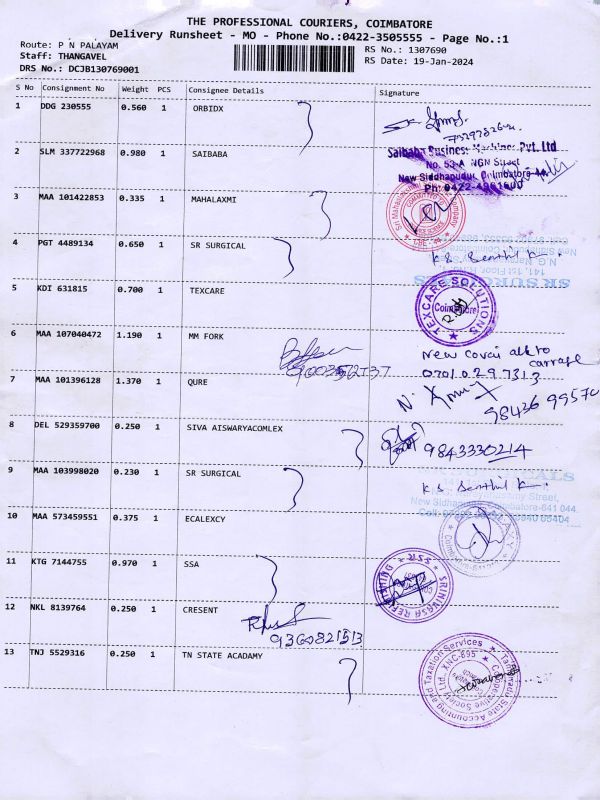 THE PROFESSIONAL COURIERS, COIMBATORE
Delivery Runsheet - MO - Phone No.:0422-3505555 - Page No.:1
Route: P N PALAYAM
Staff: THANGAVEL
DRS No.: DCJB130769001
RS No.: 1307690
RS Date: 19-Jan-2024
S No Consignment No Weight PCS Consignee Details Signature
1 DDG 230555 0.560 1 ORBIDX
2 SLM 337722968 0.980 1 SAIBABA
Saibaba Business Machines Pvt. Ltd
No. 53-A NGN Street
New Siddhapudur, Coimbatore-44
3 MAA 101422853 0.335 1 MAHALAXMI
4 PGT 4489134 0.650 1 SR SURGICAL
K S Senthil K.
5 KDI 631815 0.700 1 TEXCARE
TEXCARE SOLUTIONS
Coimbatore
6 MAA 107040472 1.190 1 MM FORK
New Covai
7 MAA 101396128 1.370 1 QURE
98436 99570
8 DEL 529359700 0.250 1 SIVA AISWARYACOMLEX
9843330214
9 MAA 103998020 0.230 1 SR SURGICAL
K S Senthil K.
10 MAA 573459551 0.375 1 ECALEXCY
11 KTG 7144755 0.970 1 SSA
12 NKL 8139764 0.250 1 CRESENT
9360821513
13 TNJ 5529316 0.250 1 TN STATE ACADAMY
Tamilnadu State Accounting and Taxation Services
Co-operative Society Ltd. XNC-695